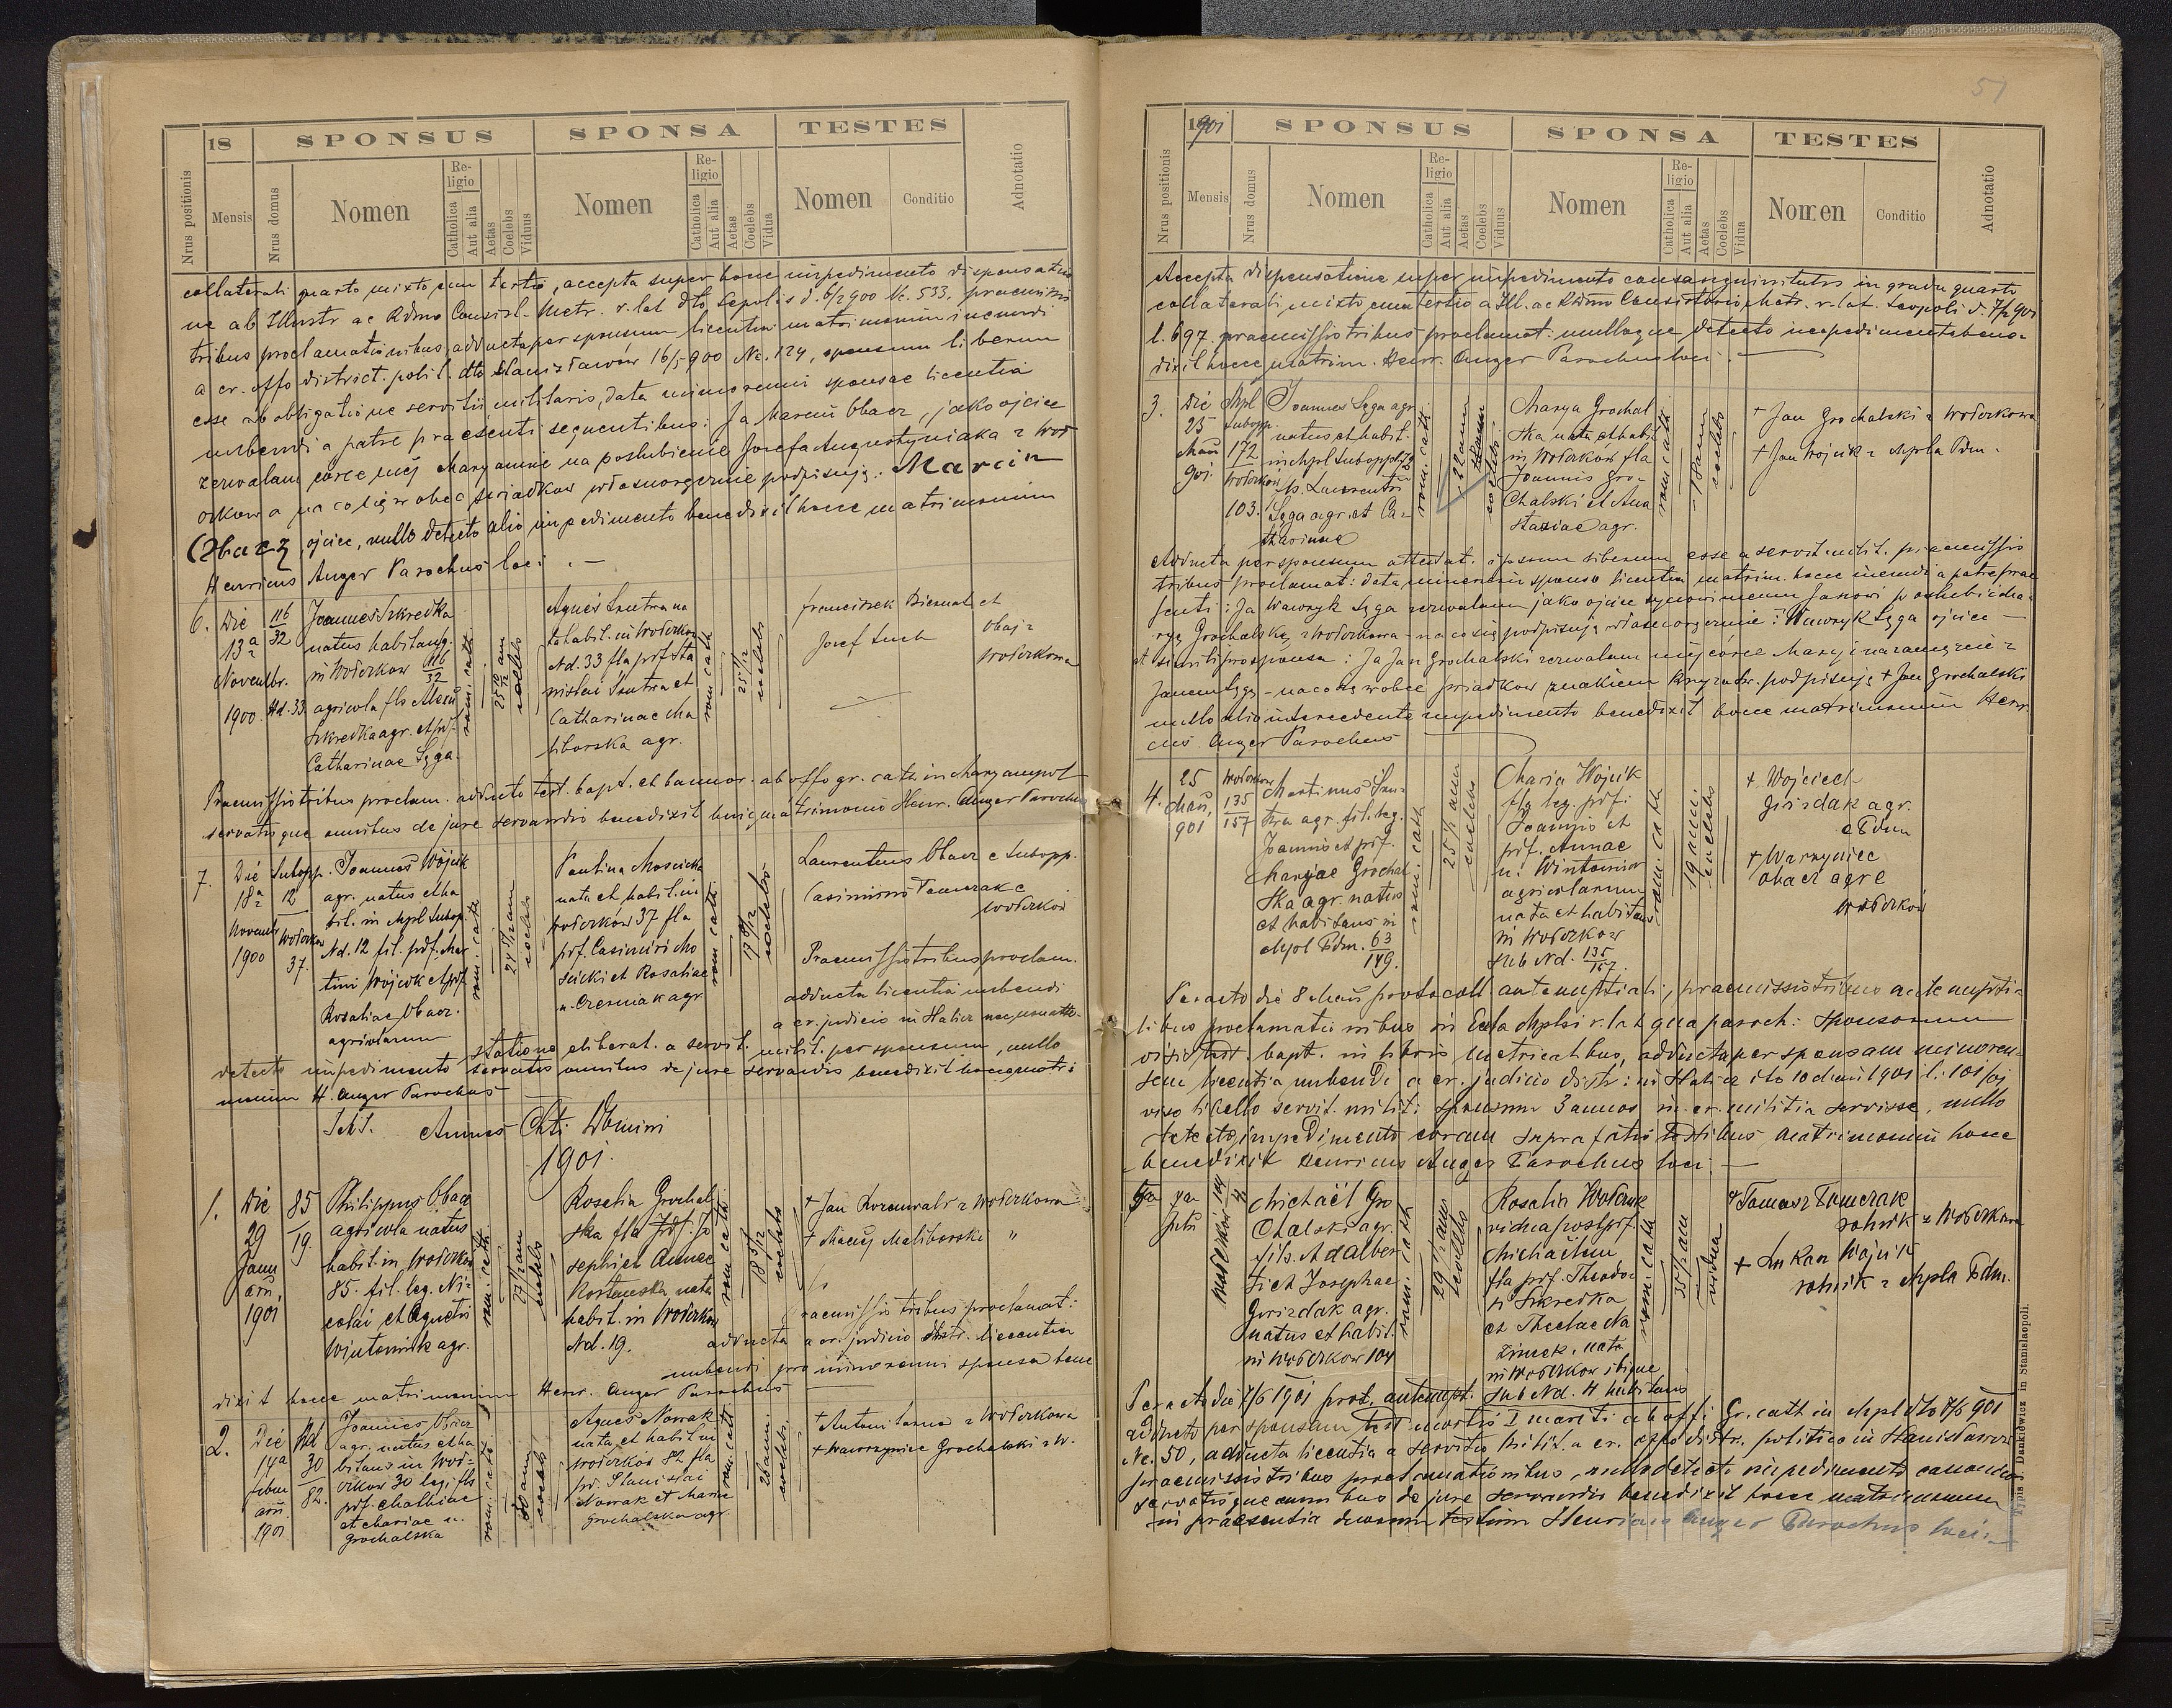 51
18 SPONSUS SPONSA TESTES
Nrus positionis Mensis Nrus domus Nomen Religio Catholica Aut alia Aetas Coelebs Viduus Nomen Religio Catholica Aut alia Aetas Coelebs Vidua Nomen Conditio Adnotatio
collaterali quarto mixto cum tertio, accepta super hocce impedimento dispensatio
ne ab Illustr ac Rdmo Consist. Metr. r. lat dto Leopolis d. 6/2 900 Nr. 533, praemissis
tribus proclamationibus, adducta per sponsum licentia matrimonium ineundi
a cr. offo district. polit. dto Stanisławów 16/5 900 Nr. 124, sponsum liberum
esse ab obligatione servitii militaris, data minorenni sponsae licentia
nubendi a patre praesenti sequentibus: Ja Marcin Obacz, jako ojciec
zezwalam córce mej Maryannie na poślubienie Józefa Augustyniaka z Woł
orkowa na co się w obec świadków własnoręcznie podpisuję: Marcin
Obacz, ojciec, nullo detecto alio impedimento benedixit hocce matrimonium
Henricus Anger Parochus loci. —
6. Die 13a Novembr. 1900.
116/32 Nd. 33
Joannes Skredka
natus habitang.
in Wołczkow 116/32
agricola fls Alexii
Skredka agr. et prf.
Catharinae Sęga.
rom. cath
25 10/12 ann
coelebs
Agnes Smutra na
ta habit. in Wołczkow
Nd. 33 fla prf. Sta
nislai Smutra et
Catharinae Ma
liborska agr.
rom. cath
25 11/12
coelebs
Franciszek Biernat et
Josef Such
obaj z
Wołczkowa
Praemissis tribus proclam. adducto test. bapt. et bannor. ab offo gr. cath. in Maryampol
servatisque omnibus de jure servandis benedixit huic matrimonio Henr. Anger Parochus
7. Die 18a Novembr 1900
Subopp. 12
Wołczkow 37.
Joannes Wójcik
agr. natus et ha
bit. in Mpl Subop.
Nd. 12 fil. prf. Mar
tini Wójcik et prf.
Rosaliae Obacz.
agricolarum
rom. cath
24 5/12 ann
coelebs
Paulina Mościcka
nata et habit. in
Wołczków 37 fla
prf. Casimiri Mo
ścicki et Rosaliae
n. Czerniak agr.
rom. cath
19 8/12
coelebs
Laurentius Obacz e Subopp.
Casimirus Tomczak e
Wołczków
Praemissis tribus proclam.
adducta licentia nubendi
a cr. judicio in Halicz nec non atte-
statione eliberat. a servit. milit. per sponsum, nullo
detecto impedimento servatis omnibus de jure servandis benedixit huic matri
monium H. Anger Parochus
Annus Chti. Domini
1901.
1. Die 29 Januarii, 1901
85 19.
Philippus Obacz
agricola natus
habit. in Wołczkow
85. fil. leg. Ni-
colai et Agnetis
Wintoniak agr.
rom. cath.
coelebs
Rosalia Grochal
ska fla prf. Jo
sephi et Annae
nata
habit. in Wołczkow
Nd. 19.
rom cath
18 5/12
coelebs
+ Jan Kozenwalt z Wołczkowa
+ Maciej Maliborski "
Praemissis tribus proclamat:
adducta a cr. judicio distr. licentia
nubendi pro minorenni sponsa bene
dixit hocce matrimonium Henr. Anger Parochus
2. Die 14a Februarii. 1901
Nd 30 82.
Joannes Obacz
agr. natus et ha
bitans in Woł-
czkow 30 leg. fls
prf. Mathiae
et Mariae n.
Grochalska
rom. cath
30 ann
coelebs
Agnes Nowak
nata et habit in
Wołczków 82 fla
pr. Stanislai
Nowak et Mariae
Grochalska agr.
rom. cath
28 ann.
coelebs.
+ Antoni z Wołczkowa
+ Wawrzyniec Grochalski z W.
1901 SPONSUS SPONSA TESTES
Nrus positionis Mensis Nrus domus Nomen Religio Catholica Aut alia Aetas Coelebs Viduus Nomen Religio Catholica Aut alia Aetas Coelebs Vidua Nomen Conditio Adnotatio
Accepta dispensatione super impedimento consanguinitatis in gradu quarto
collaterali mixto cum tertio a Ill. ac Rdmo Consistorio Metr. r. lat. Leopoli d. 7/2 901
l. 697. praemissis tribus proclamat. nulloque detecto impedimento bene-
dixit hocce matrim. Henr. Anger Parochus loci. —
3. Die 25 Maii 901.
Mpl Subopp. 172
Wołczków 103.
Joannes Sęga agr
natus et habit.
in Mpl Subopp 172
fs. Laurentii
Sęga agr. et Ca-
tharinae
rom. cath
22 ann
coelebs.
Marya Grochal
ska nata et habit
in Wołczkow fla
Joannis Gro-
chalski et Ana
staziae agr.
rom. cath
18 ann
coelebs
+ Jan Grochalski z Wołczkowa
+ Jan Wójcik z Mpla Pdm.
Adducta per sponsum attestat. ipsum liberum esse a servit. milit. praemissis
tribus proclamat: data minorenni sponso licentia matrim. hocce ineundi a patre prae
senti: Ja Wawryk Sęga zezwalam jako ojciec synowi memu Janowi poślubić Ma-
ryę Grochalską z Wołczkowa — na co się podpisuję własnoręcznie: Wawryk Sęga ojciec —
et simili pro sponsa: Ja Jan Grochalski zezwalam mej córce Maryi na zamęzcie z
Janem Sęgą — na co się w obec świadkow znakiem krzyża św. podpisuję + Jan Grochalski
nullo alio intercedente impedimento benedixit hocce matrimonium Henri-
cus Anger Parochus
4. 25 Maii, 901
Wołczkow 135/157
Martinus Smu-
tra agr. fil. leg.
Joannis et prf.
Maryae Grochal
ska agr. natus
et habitans in
Mpol Pdm. 63/149.
rom. cath
25 1/2 ann
coelebs
Maria Wójcik
fla leg. prf:
Joannis et
prf. Annae
n. Wintoniak
agricolarum
nata et habitans
in Wołczkow
sub Nd. 135/157.
rom. cath
19 ann.
coelebs
+ Wojciech
Gwizdak agr.
e Pdm
+ Warzyniec
Obacz agr e
Wołczkow
Peracto die 8 Maii protocoll. antenuptiali, praemissis tribus antenupti-
libus proclamationibus in Ecla Mplsi r. lat qua paroch: sponsorum
viso test. bapt. in libris metricalibus, adducta per sponsam minoren-
sem licentia nubendi a cr. judicio distr: in Halicz dto 10 Maii 1901 l. 101/01
viso libello servit. milit: sponsum 3 annos in cr. militia servisse, nullo
detecto impedimento coram suprafatis testibus matrimonium hocce
benedixit Henricus Anger Parochus loci. —
5. 9na Julii
Wołczków 104 4
Michaël Gro
chalski agr.
fils. Adalber
ti et Josephae
Gwizdak agr.
natus et habit.
in Wołczkow 104
rom. cath
29 1/2 ann
coelebs
Rosalia Wołczuk
vidua post prf.
Michaëlem
fla prf. Theodo-
ri Skredka
et Theclae Na
zimek. nata
in Wołczkow ibique
sub Nd. 4 habitans
rom. cath
35 1/2 ann
vidua
+ Tomasz Tomczak
rolnik z Wołczkowa
+ Lukasz Wojcik
rolnik z Mpla Pdm.
Peracto die 7/6 1901 prot. antenupt.
adducto per sponsam test. mortis I mariti ab offi Gr. cath in Mpl dto 7/6 901
Nr. 50, adducta licentia a servitio milit. a cr. offo distr. politico in Stanisławow
praemissis tribus proclamationibus, nullo detecto impedimento canonico
servatisque omnibus de jure servandis benedixit hocce matrimonium
in praesentia duorum testium Henricus Anger Parochus loci. —
Typis J. Dankiewicz in Stanislaopoli.